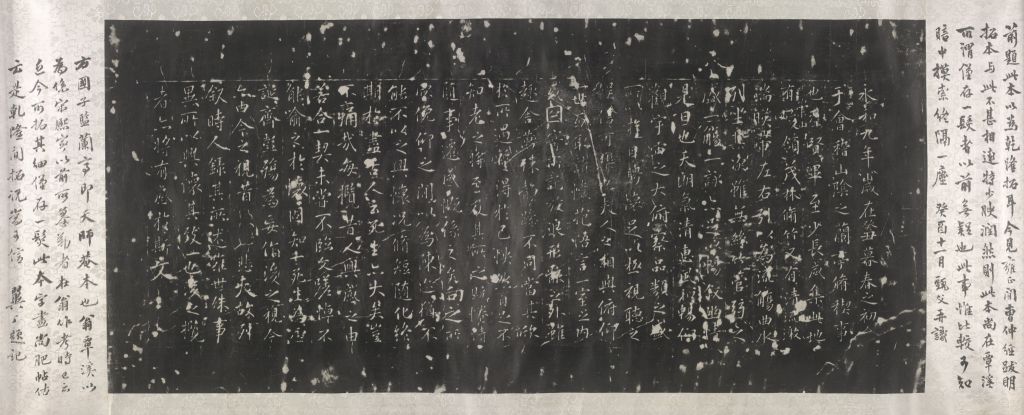 前題此本以為乾隆拓耳今見雍正間曹仲經跋明
拓本與此不甚相遠特少瘦潤然則此本尚在覃溪
所謂僅存一髮者以前無疑也此事惟比較可知
暗中摸索終隔一塵 癸酉十一月 父再識
永和九年歲在癸丑暮春之初
于會稽山陰之蘭亭脩禊事
也羣賢畢至少長咸集此地
領茂林脩竹又有清流激
湍暎帶左右引以為流觴曲水
列坐其次雖無絲竹管弦之
盛一觴一詠亦足以暢敘幽情
是日也天朗氣清惠風和暢仰
觀宇宙之大俯察品類之盛
所以遊目騁懷足以極視聽之
娛信可樂也夫人之相與俯仰
一世或取諸懷抱悟言一室之內
或因寄所託放浪形骸之外雖
趣舍萬殊靜躁不同當其欣
於所遇暫得於己快然自足不
知老之將至及其所之既惓
隨事遷感慨係之矣向之所
欣俛仰之間以為陳迹猶不
能不以之興懷況脩短隨化終
期於盡古人云死生亦大矣豈
不痛哉每攬昔人興感之由
若合一契未嘗不臨文嗟悼不
能喻之於懷固知一死生為虛
誕齊彭殤為妄作後之視今
亦由今之視昔悲夫故列
敘時人錄其所述雖世殊事
異所以興懷其致一也後之攬
者亦將有感於斯文
右國子監蘭亭即天師菴本也翁覃溪以
為絕宋熙寧以前所摹勒者在翁作考時已云
至今所拓其細僅存一髮此本字畫尚肥帖估
云是乾隆間拓記